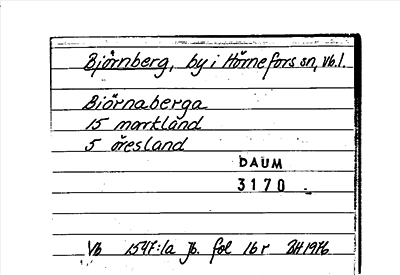 Björnberg, by i Hörnefors sn, Vb.l.
Biörnaberga
15 markland
5 öresland
DAUM
3170
Vb 1547:1a Jb. fol 16r BH 1976